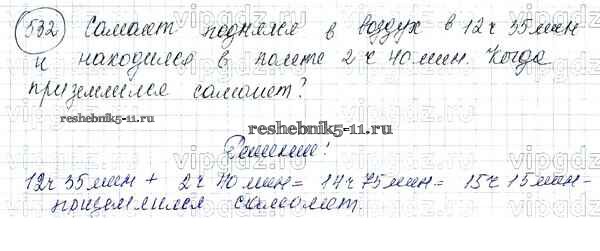 532 Самолет поднялся в воздух в 12 ч 35 мин
и находился в полете 2 ч 40 мин. Когда
приземлился самолет?
reshebnik5-11.ru
reshebnik5-11.ru
Решение:
12 ч 35 мин + 2 ч 40 мин = 14 ч 75 мин = 15 ч 15 мин -
приземлился самолет.
vipgdz.ru